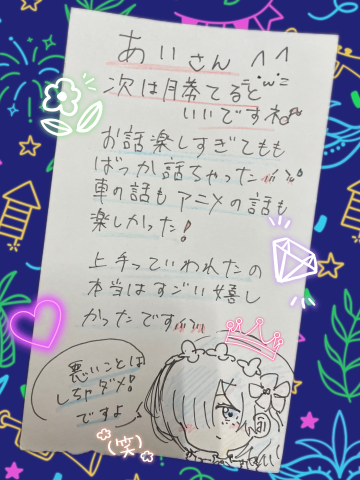 あいさん ^^
次は勝てると
いいですね♪
お話楽しすぎて
ばっか話ちゃった
車の話もアニメの話も
楽しかった!
上手っていわれたの
本当はすごい嬉し
かったです
悪いことは
しちゃダメ!
ですよ
(笑)
ai